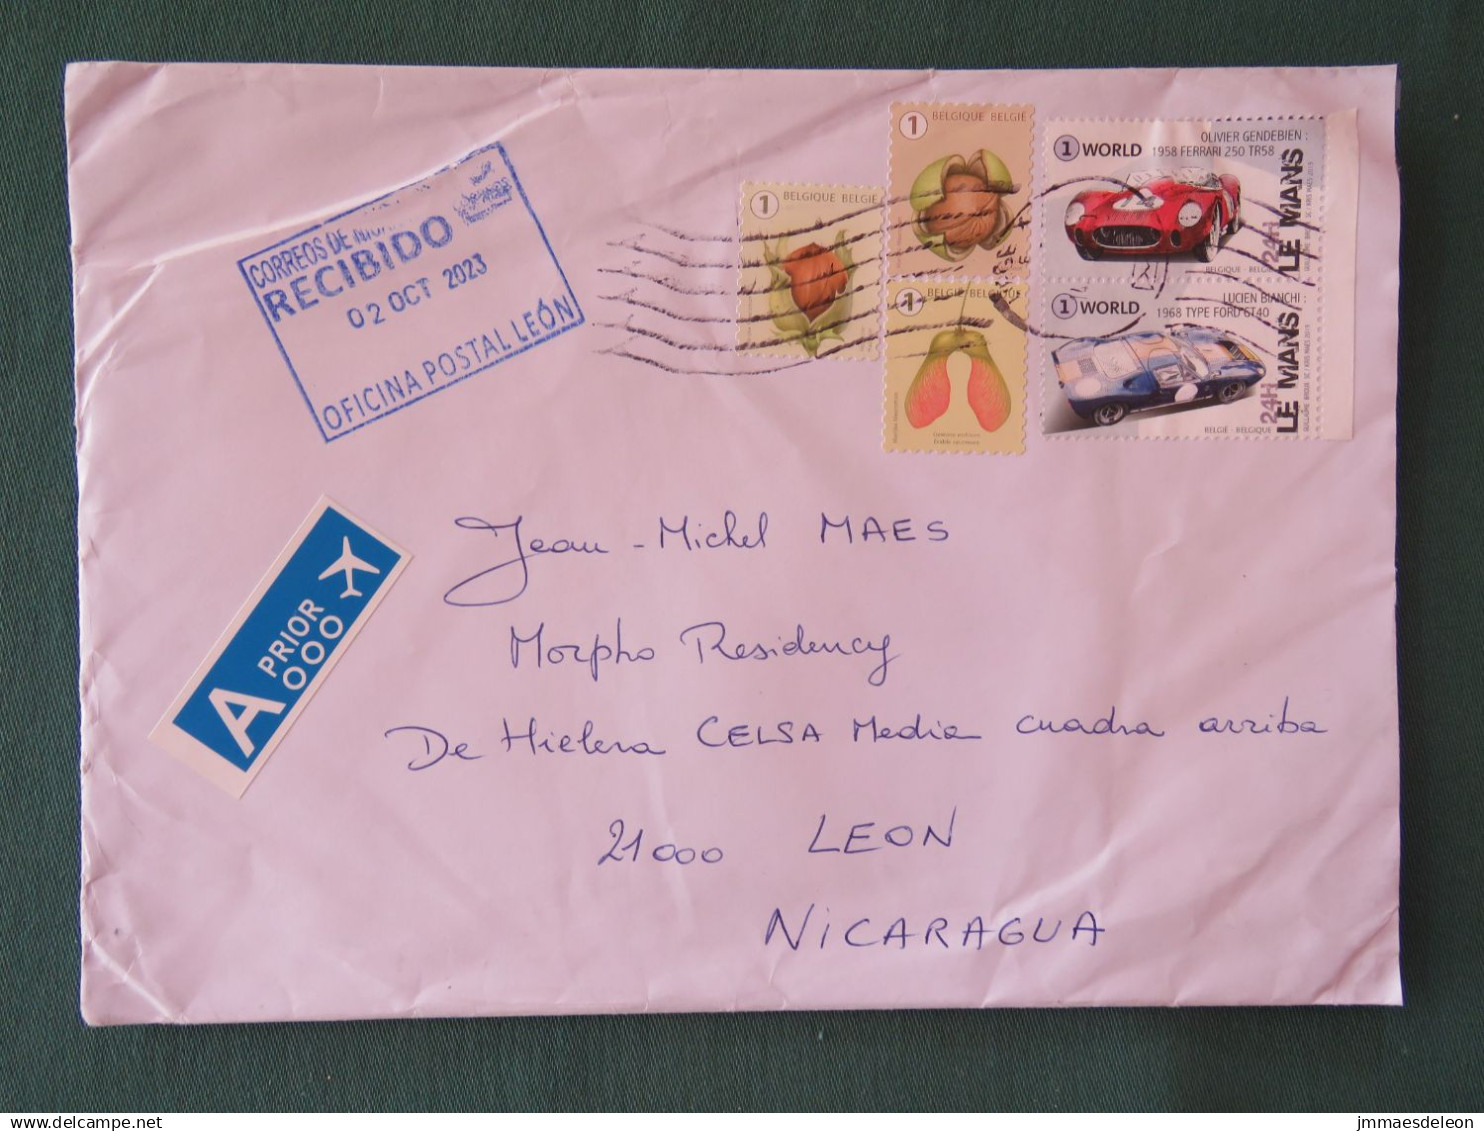 CORREOS DE
RECIBIDO
02 OCT 2023
OFICINA POSTAL LEÓN
1 BELGIQUE BELGIË
1 BELGIQUE BELGIË
1 BELGIË BELGIQUE
1 WORLD
OLIVIER GENDEBIEN :
1958 FERRARI 250 TR58
24H LE MANS
BELGIQUE - BELGIË
1 WORLD
LUCIEN BIANCHI :
1968 TYPE FORD GT40
24H LE MANS
BELGIË - BELGIQUE
A PRIOR
Jean-Michel MAES
Morpho Residency
De Hielera CELSA Media cuadra arriba
21000 LEON
NICARAGUA
jmmaesdeleon